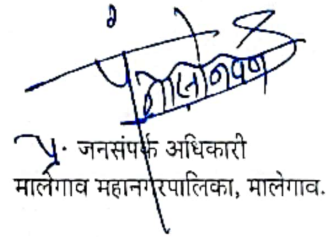 प्र. जनसंपर्क अधिकारी
मालेगाव महानगरपालिका, मालेगाव.